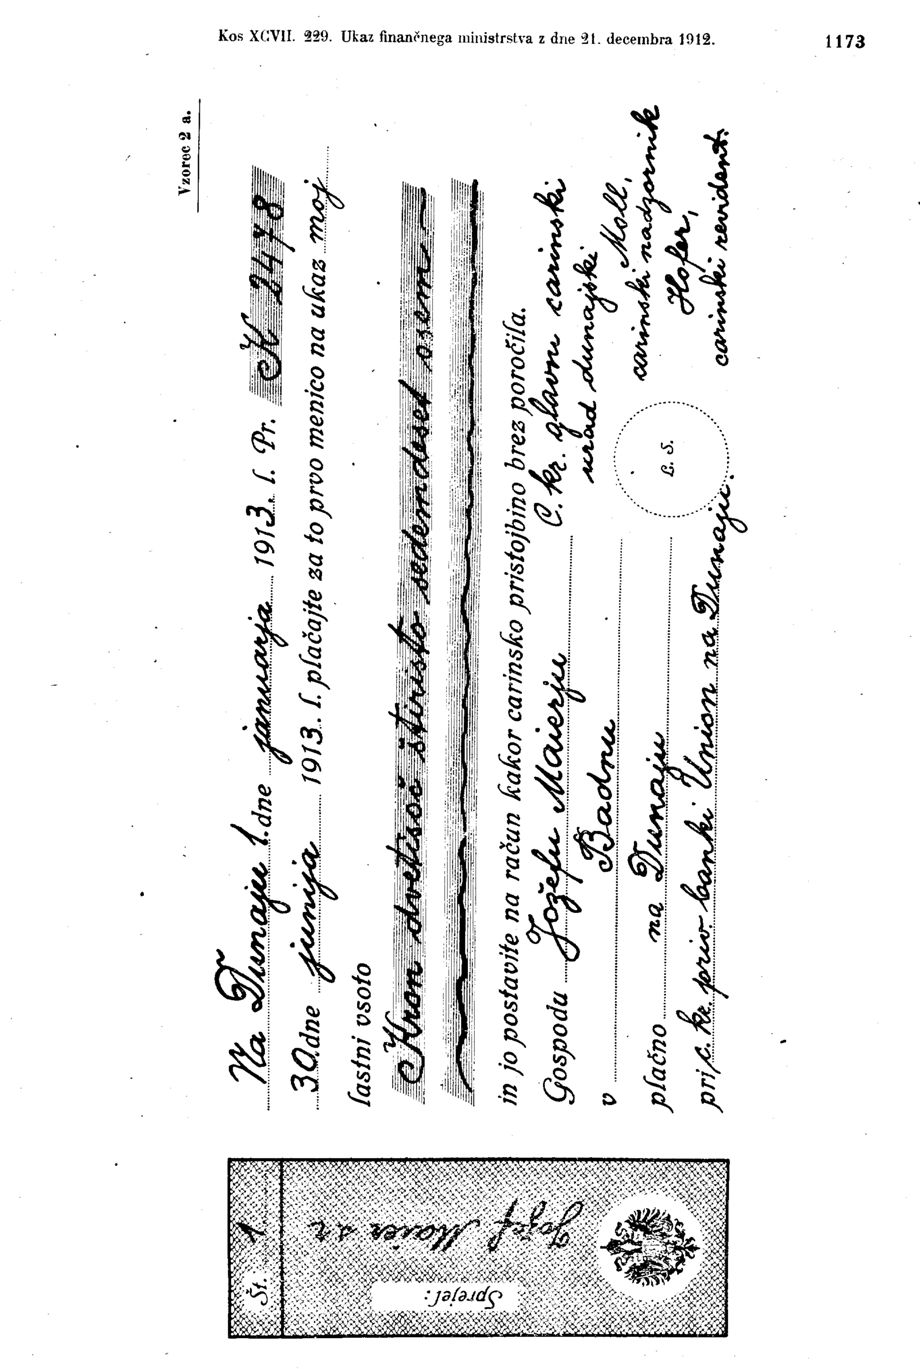 Kos XCVII. 229. Ukaz finančnega ministrstva z dne 21. decembra 1912. 1173
Vzorec 2 a.
Na Dunaju 1. dne januarja 1913. l. Pr. K 2478
30. dne junija 1913. l. plačajte za to prvo menico na ukaz moj
lastni vsoto
Kron dvetisoč štiristo sedemdeset osem
in jo postavite na račun kakor carinsko pristojbino brez poročila.
Gospodu Jožefu Maierju
v Badnu
plačno na Dunaju
pri c. kr. priv. banki Union na Dunaju.
C. kr. glavni carinski
urad dunajski
Moll,
carinski nadzornik
Hofer,
carinski revident.
L. S.
Št. 1
Sprejel:
Jožef Maier s. r.